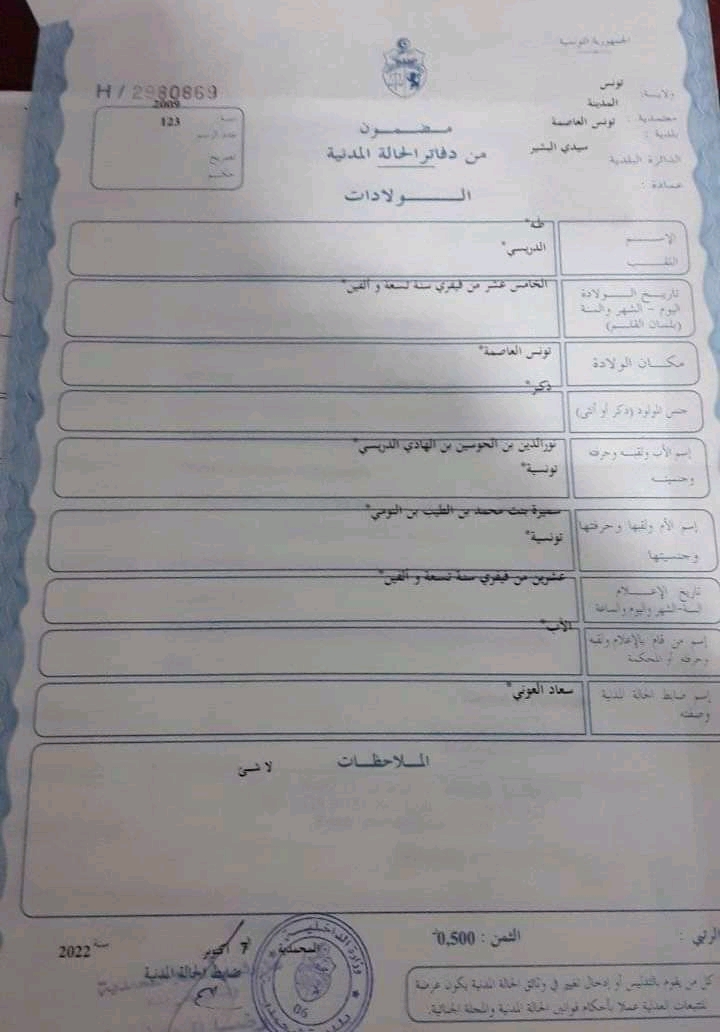 الجمهورية التونسية
ولاية: تونس
معتمدية: المدينة
بلدية: تونس العاصمة
الدائرة البلدية سيدي البشير
عمادة :
H / 2980869
سنة 2009
عدد الرسم 123
تصريح
حكم
مضمون
من دفاتر الحالة المدنية
الولادات
الإسم طه*
اللقب الدريسي*
تاريخ الولادة الخامس عشر من فيفري سنة تسعة و ألفين*
اليوم - الشهر والسنة
(بلسان القلم)
مكان الولادة تونس العاصمة*
جنس المولود (ذكر أو أنثى) ذكر*
إسم الأب ولقبه وحرفته نورالدين بن الحوسين بن الهادي الدريسي*
وجنسيته تونسية*
إسم الأم ولقبها وحرفتها سميرة بنت محمد بن الطيب بن التومي*
وجنسيتها تونسية*
تاريخ الإعلام عشرين من فيفري سنة تسعة و ألفين*
السنة-الشهر واليوم والساعة
إسم من قام بالإعلام ولقبه الأب*
وحرفته أو المحكمة
إسم ضابط الحالة المدنية سعاد العوني*
وصفته
الملاحظات
لا شئ
الثمن : 0,500
المحمدية 7 أكتوبر سنة 2022
ضابط الحالة المدنية
وزارة الداخلية
06
كل من يقوم بالتدليس أو إدخال تغيير في وثائق الحالة المدنية يكون عرضة
للتتبعات العدلية عملا بأحكام قوانين الحالة المدنية والمجلة الجنائية.